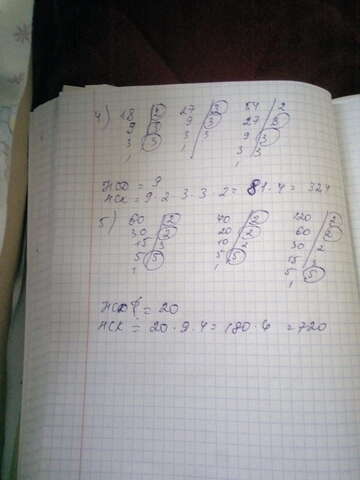 4) 18 2 27 3 54 2
9 3 9 3 27 3
3 3 3 3 9 3
1 1 3 3
1
НОД = 9
НСК = 9 · 2 · 3 · 3 · 2 = 81 · 4 = 324
5) 60 2 70 2 120 2
30 2 20 2 60 2
15 3 10 2 30 2
5 5 5 5 15 3
1 1 5 5
1
НОД = 20
НСК = 20 · 9 · 4 = 180 · 4 = 720